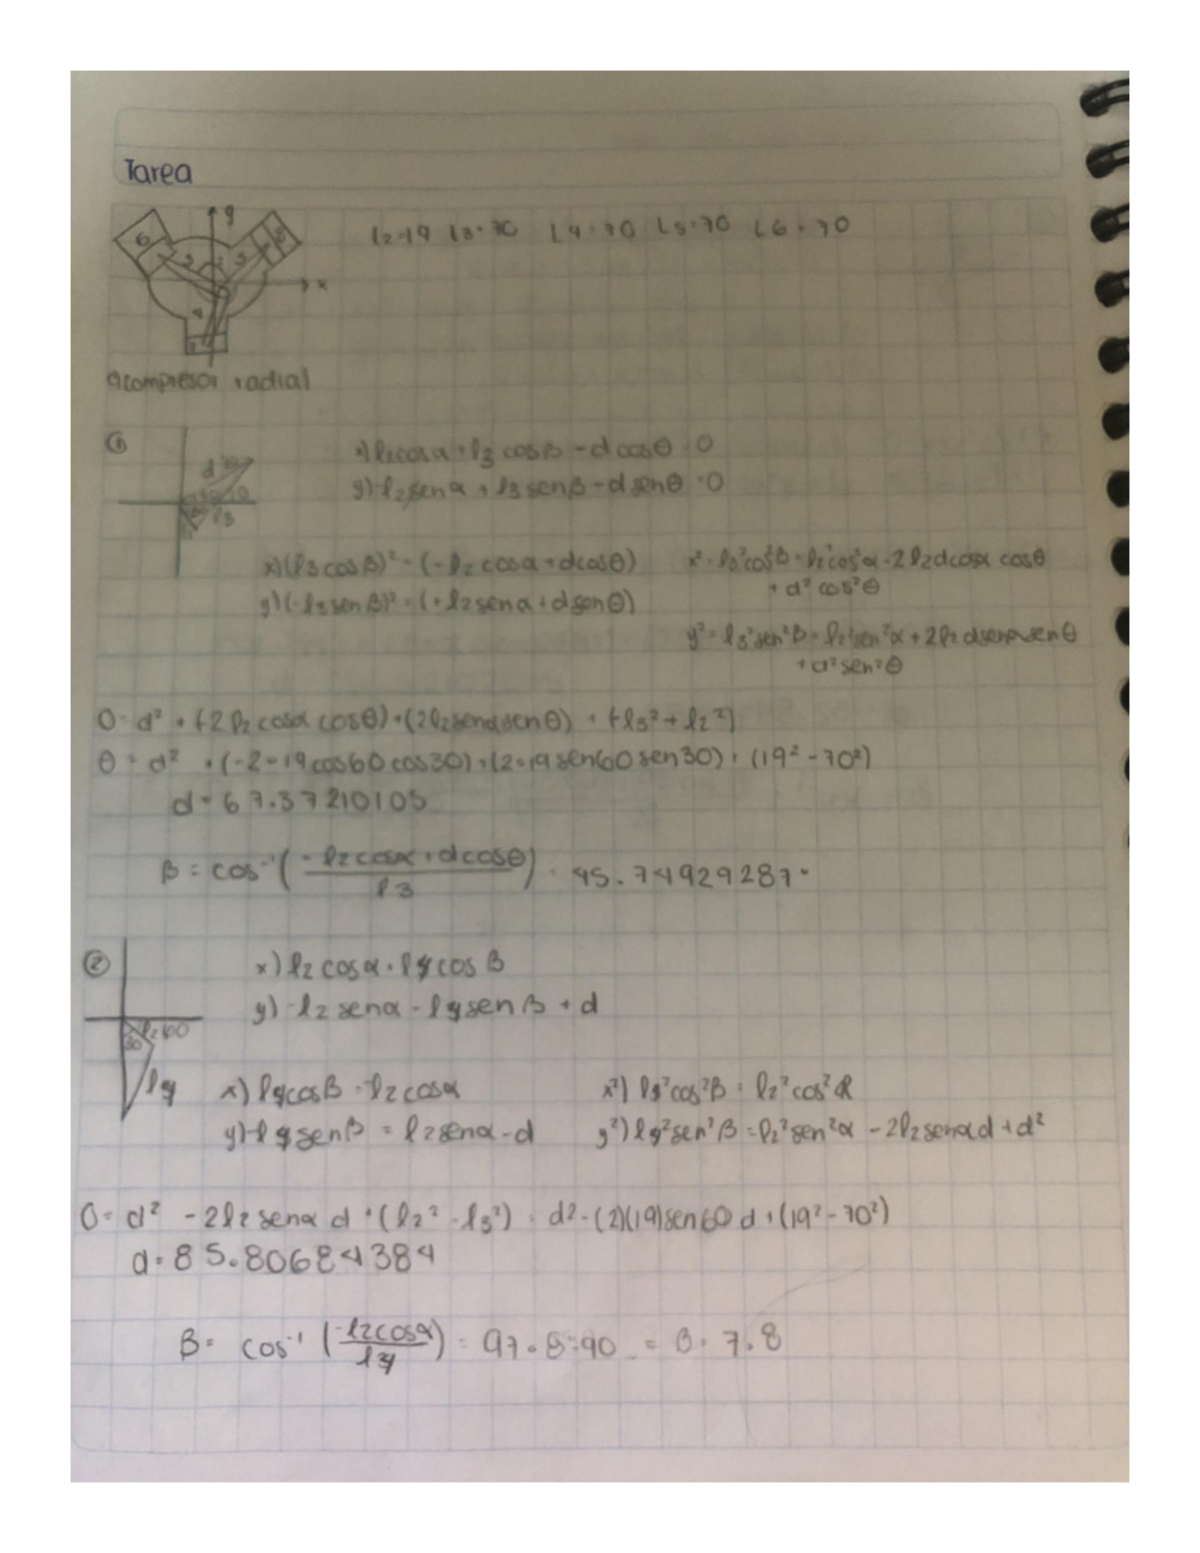 Tarea
y
6
x
l2=19 l3=70 L4=70 L5=70 L6=70
acompresor radial
①
x) l2cosα + l3 cosβ - d cosθ = 0
y) -l2 senα + l3 senβ - d senθ = 0
d
l3
x) (l3 cosβ)² = (-l2 cosα + dcosθ)
x² = l3² cos²β = l2² cos²α - 2 l2 d cosα cosθ
+ d² cos²θ
y) (-l3 senβ)² = (+l2 senα + d senθ)
y² = l3² sen²β = l2² sen²α + 2l2 d senα sen θ
+ d² sen²θ
0 = d² + (-2 l2 cosα cosθ) + (2l2 senα sen θ) + (-l3² + l2²)
θ = d² + (-2 * 19 cos60 cos30) + (2*19 sen60 sen 30) + (19² - 70²)
d = 67.37210105
β = cos⁻¹ ( -l2 cosα + d cosθ / l3 ) = 45.74929287°
②
x) l2 cosα + l4 cos β
y) -l2 senα - l4 sen β + d
l2 60
30
l4
x) l4 cosβ = -l2 cosα
x²) l3² cos²β = l2² cos² α
y) -l4 senβ = l2 senα - d
y²) l4² sen²β = l2² sen²α - 2l2 senα d + d²
0 = d² - 2l2 senα d + (l2² - l3²) = d² - (2)(19) sen 60 d + (19² - 70²)
d = 85.80684384
β = cos⁻¹ ( -l2 cosα / l4 ) = 97.8-90 = β = 7.8